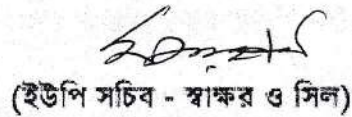 (ইউপি সচিব - স্বাক্ষর ও সিল)